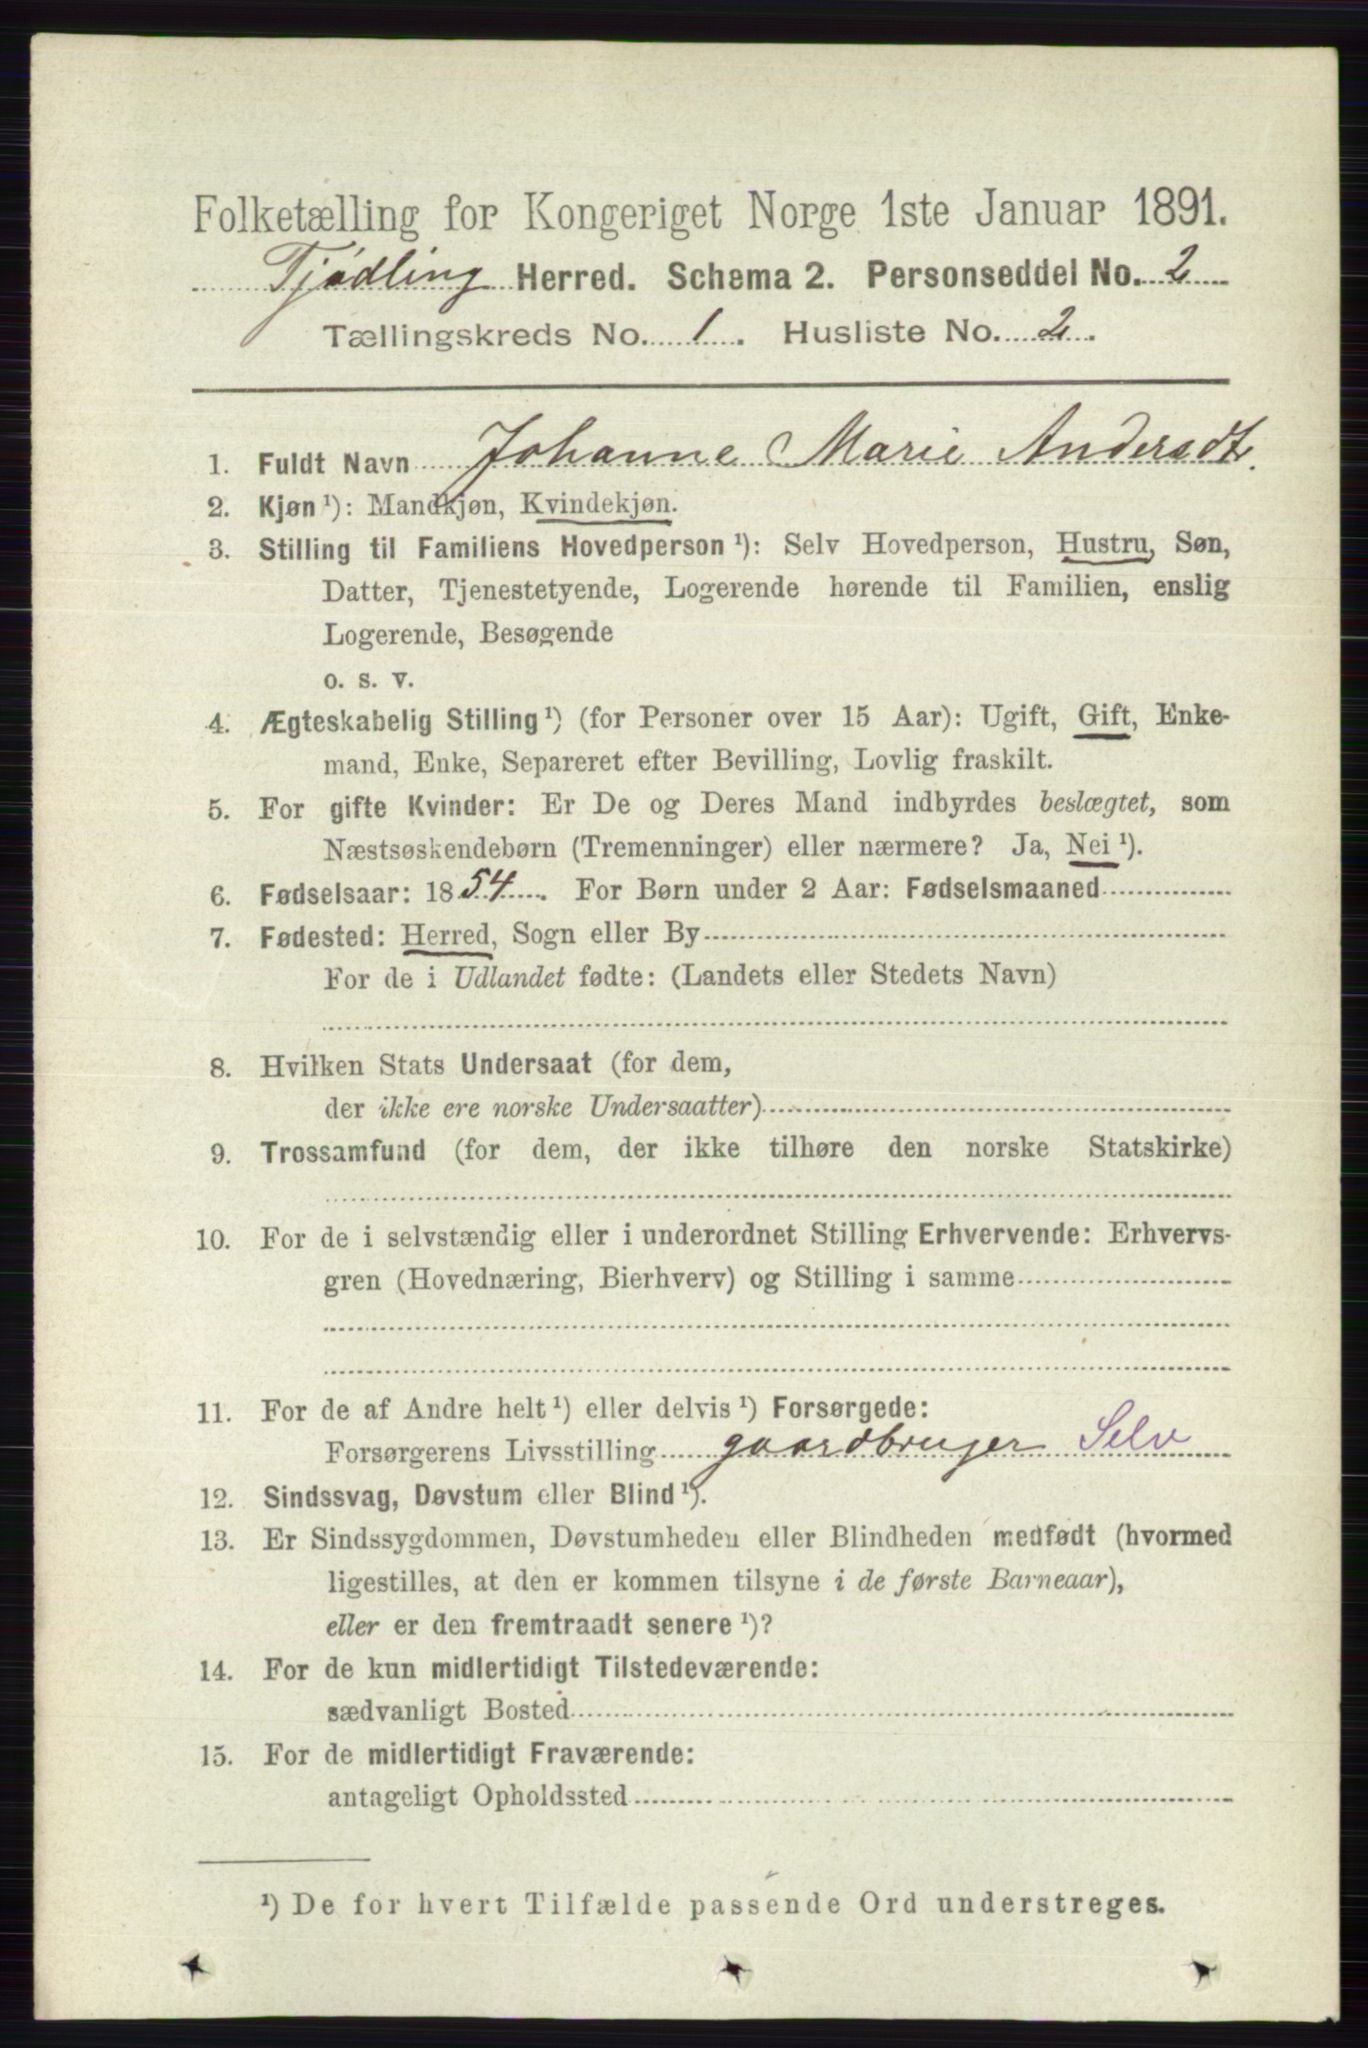 Folketælling for Kongeriget Norge 1ste Januar 1891.
Tjødling Herred. Schema 2. Personseddel No. 2
Tællingskreds No. 1. Husliste No. 2.
1. Fuldt Navn Johanne Marie Andersdt.
2. Kjøn ¹): Mandkjøn, Kvindekjøn.
3. Stilling til Familiens Hovedperson ¹): Selv Hovedperson, Hustru, Søn,
Datter, Tjenestetyende, Logerende hørende til Familien, enslig
Logerende, Besøgende
o. s. v.
4. Ægteskabelig Stilling ¹) (for Personer over 15 Aar): Ugift, Gift, Enke-
mand, Enke, Separeret efter Bevilling, Lovlig fraskilt.
5. For gifte Kvinder: Er De og Deres Mand indbyrdes beslægtet, som
Næstsøskendebørn (Tremenninger) eller nærmere? Ja, Nei ¹).
6. Fødselsaar: 1854. For Børn under 2 Aar: Fødselsmaaned
7. Fødested: Herred, Sogn eller By
For de i Udlandet fødte: (Landets eller Stedets Navn)
8. Hvilken Stats Undersaat (for dem,
der ikke ere norske Undersaatter)
9. Trossamfund (for dem, der ikke tilhøre den norske Statskirke)
10. For de i selvstændig eller i underordnet Stilling Erhvervende: Erhvervs-
gren (Hovednæring, Bierhverv) og Stilling i samme
11. For de af Andre helt ¹) eller delvis ¹) Forsørgede:
Forsørgerens Livsstilling gaardbruger Selv
12. Sindssvag, Døvstum eller Blind ¹).
13. Er Sindssygdommen, Døvstumheden eller Blindheden medfødt (hvormed
ligestilles, at den er kommen tilsyne i de første Barneaar),
eller er den fremtraadt senere ¹)?
14. For de kun midlertidigt Tilstedeværende:
sædvanligt Bosted
15. For de midlertidigt Fraværende:
antageligt Opholdssted
¹) De for hvert Tilfælde passende Ord understreges.